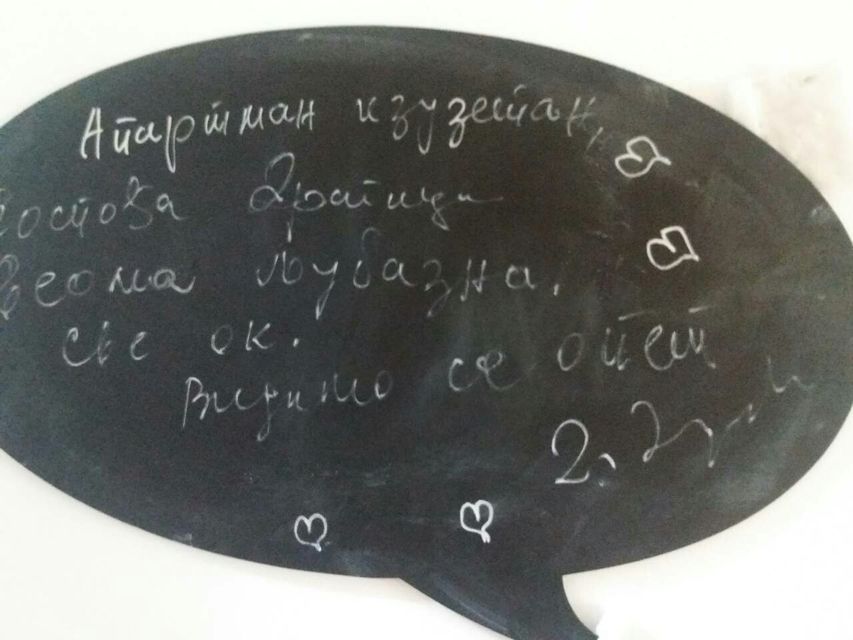 Апартман изузетан,
Госпођа Драгица
веома љубазна.
све ок.
Видимо се опет